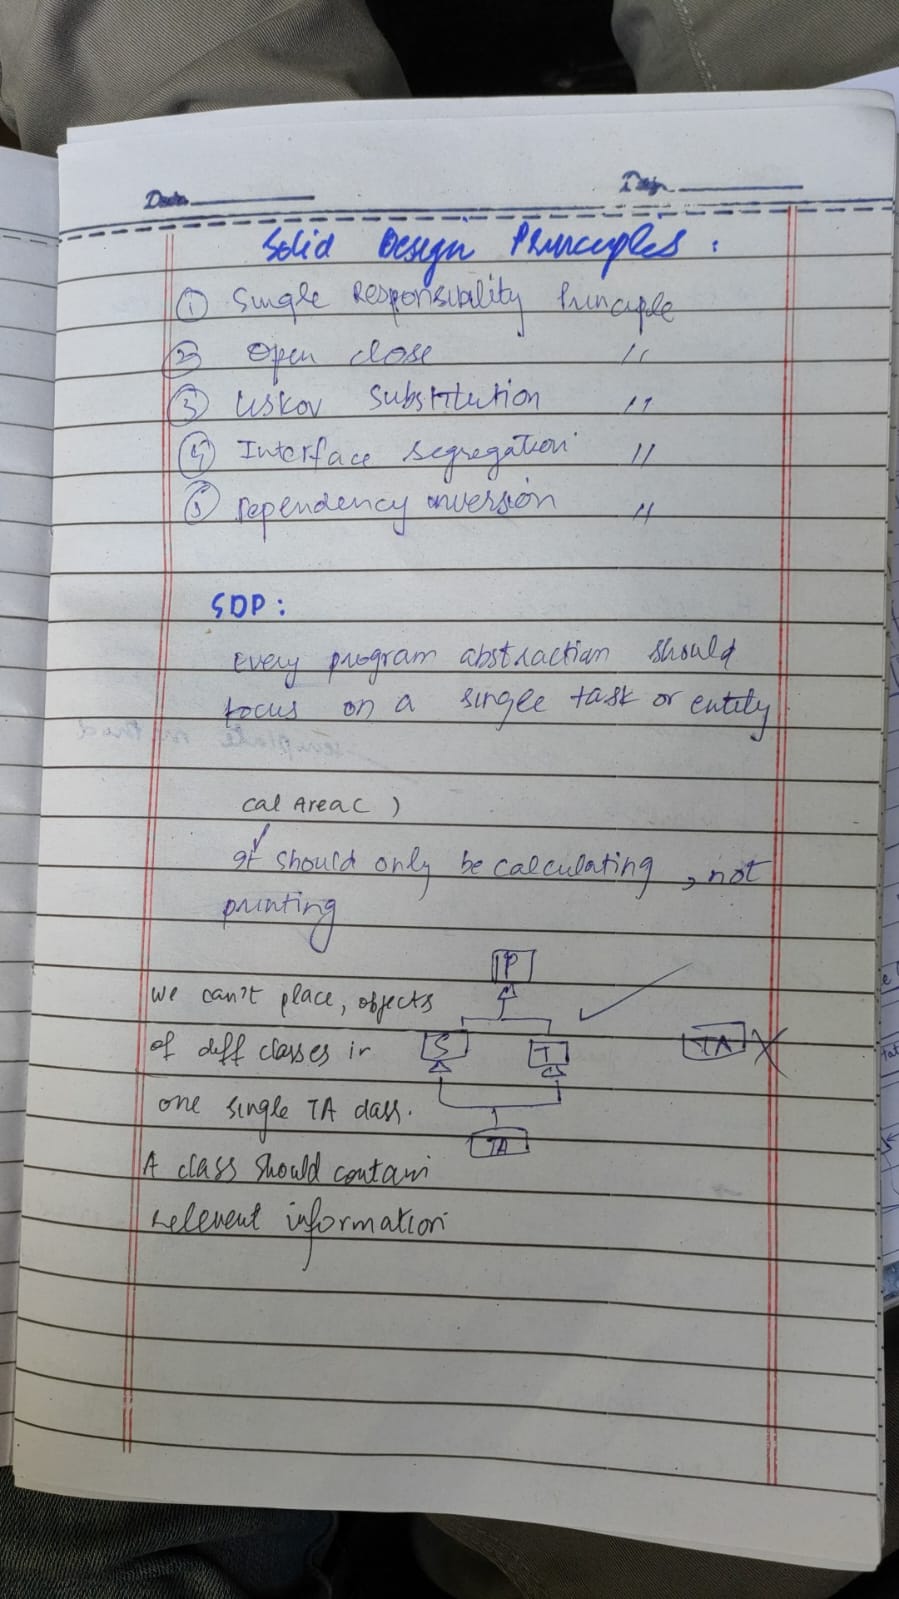 Date
Day
Solid Design Principles :
① Single Responsibility Principle
② Open close "
③ Liskov Substitution "
④ Interface Segregation "
⑤ Dependency inversion "
SDP :
Every program abstraction should
focus on a single task or entity
cal Area( )
It should only be calculating, not
printing
P
we can't place, objects
of diff classes in
S T TA
one single TA class.
TA
A class should contain
relevent information